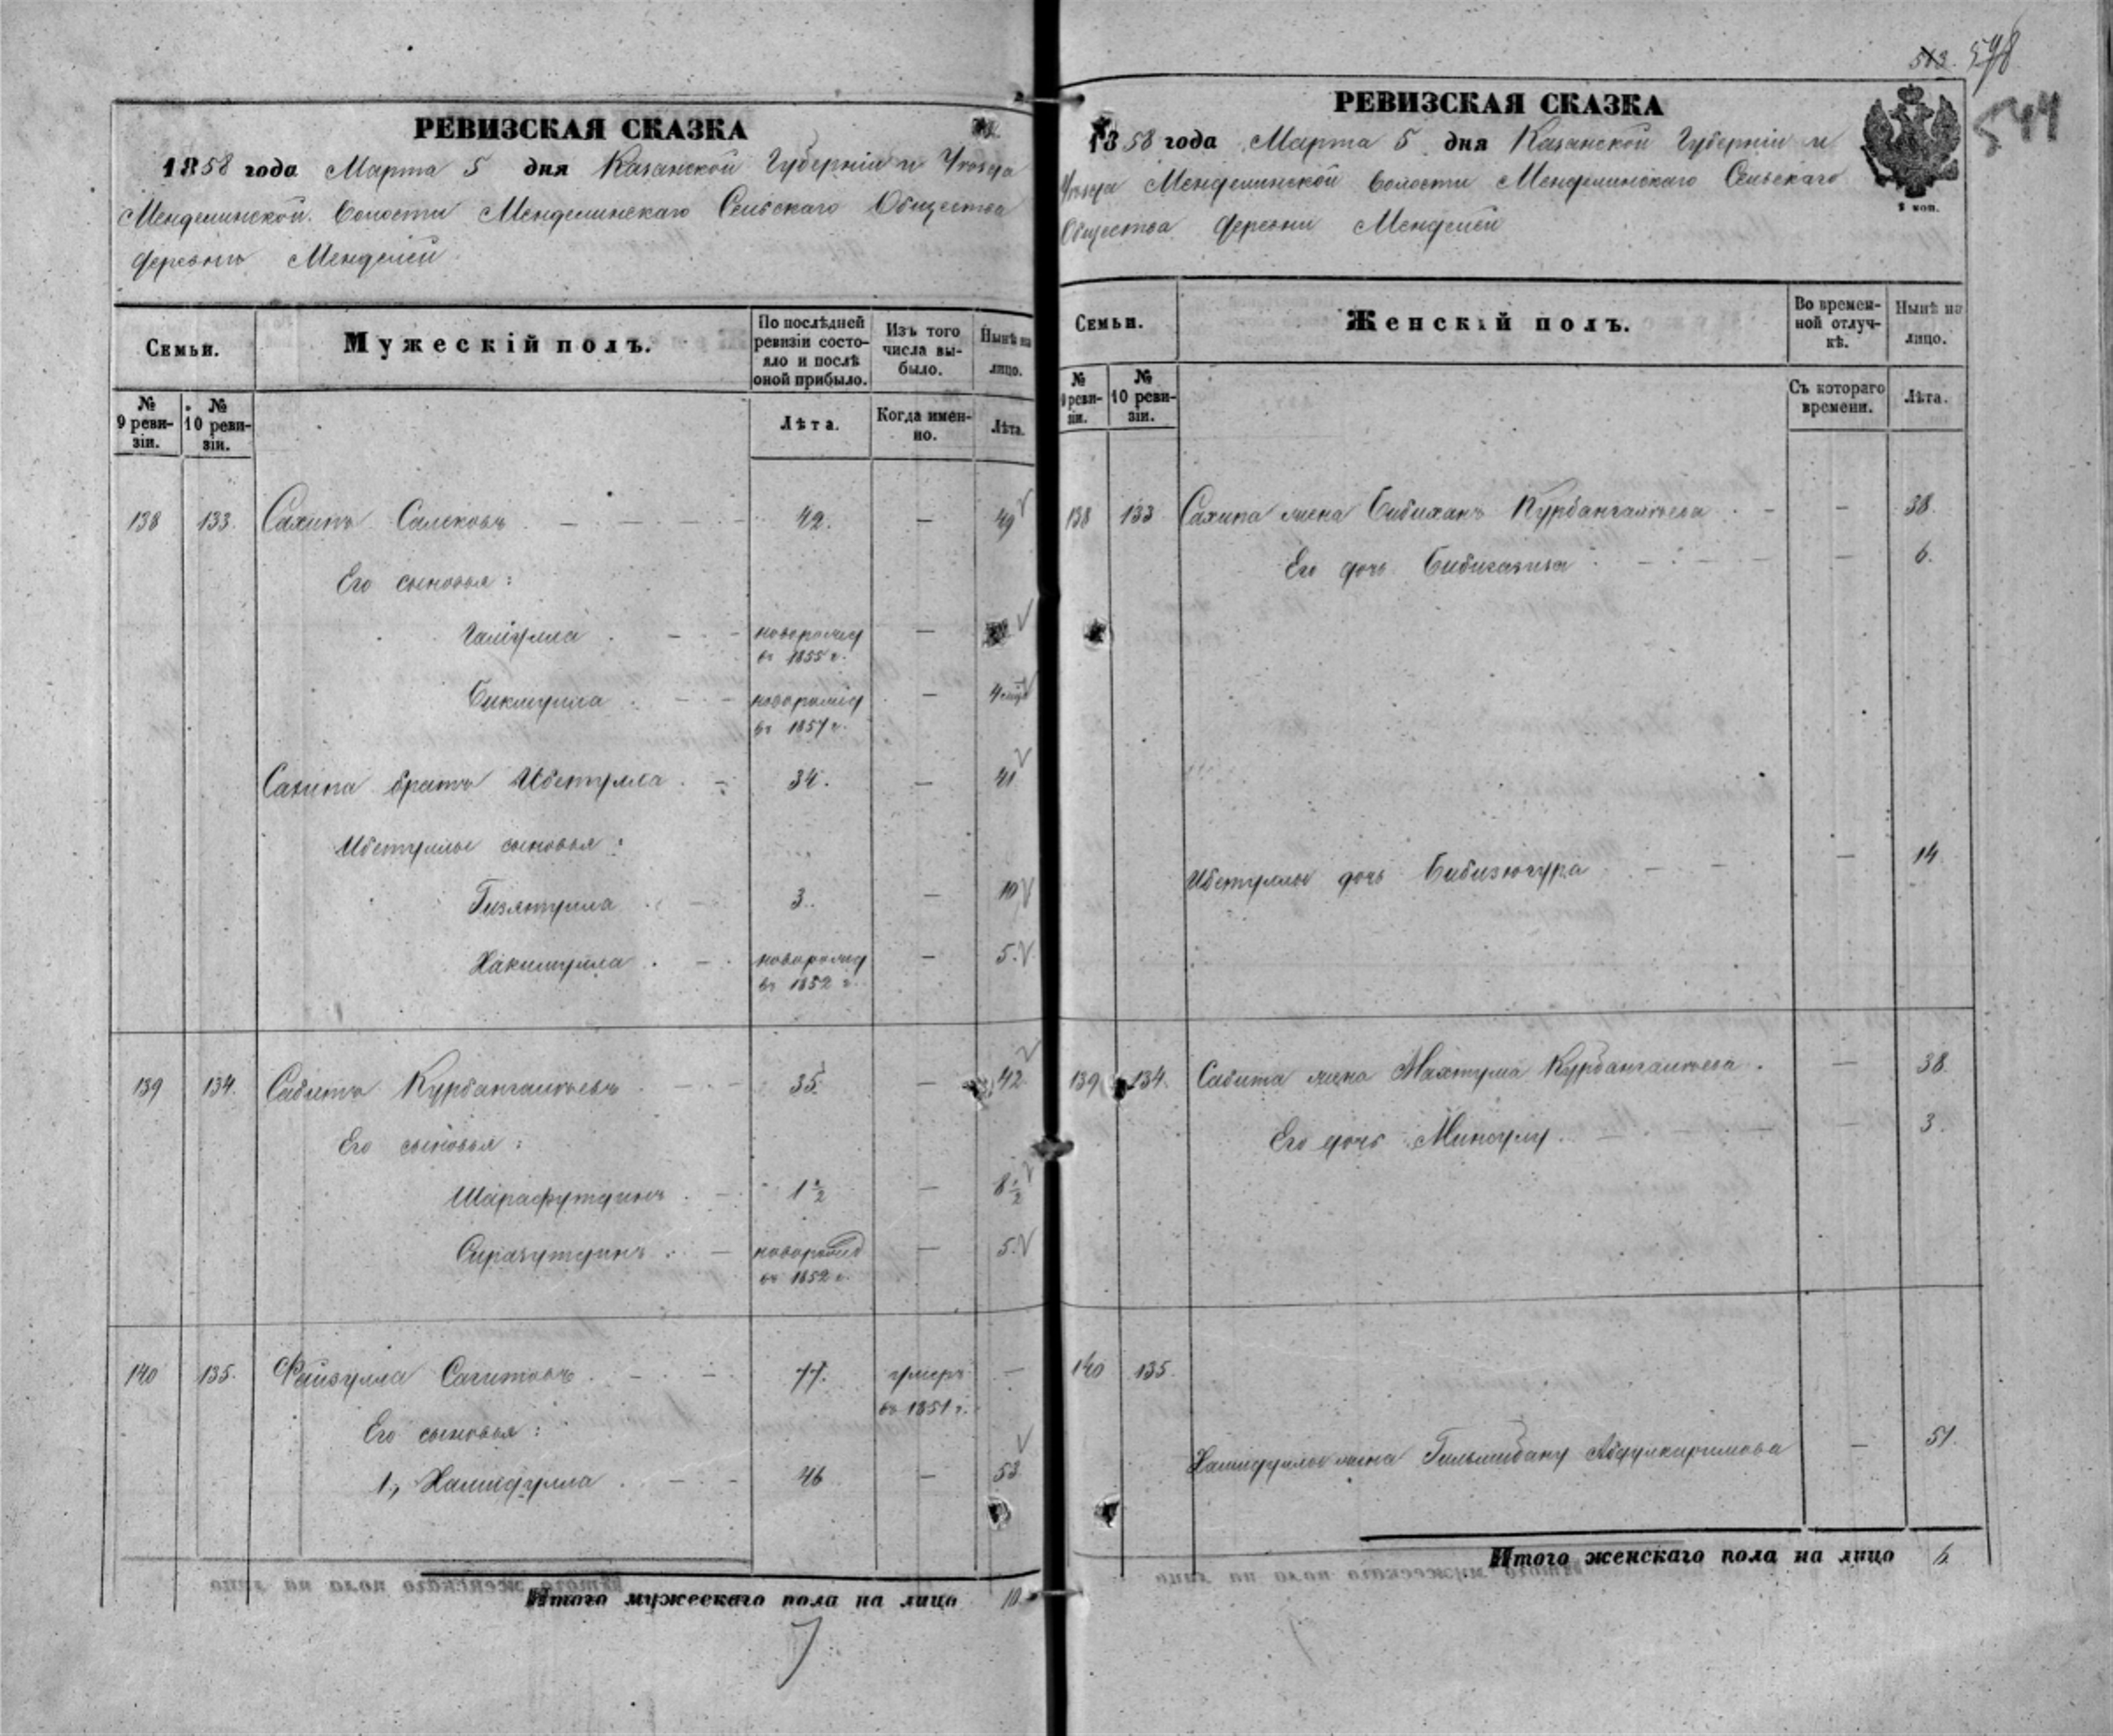 РЕВИЗСКАЯ СКАЗКА
1858 года Марта 5 дня Казанской Губерніи и Уѣзда
Менделинской Волости Менделинскаго Сельскаго Общества
деревнѣ Менделей
Семьи.
Мужескій полъ.
По послѣдней ревизіи состояло и послѣ оной прибыло.
Изъ того числа выбыло.
Нынѣ на лицо.
№ 9 ревизіи.
№ 10 ревизіи.
Лѣта.
Когда именно.
Лѣта.
138 133. Сахипъ Салековъ 42. — 49
Его сыновья:
Галіулла новорожд — 
въ 1855 г.
Бикмулла новорожд — 4 мѣс
въ 1857 г.
Сахипа братъ Ибетулла 34. — 41
Ибетуллы сыновья:
Гизятулла 3. — 10
Хакимулла новорожд — 5.
въ 1852 г.
139 134. Сабитъ Курбангалѣевъ 35. — 42
Его сыновья:
Шарафутдинъ 1 1/2 — 8 1/2
Сиразутдинъ новорожд — 5.
въ 1852 г.
140 135. Файзулла Сагитовъ 77. умеръ —
въ 1851 г.
Его сыновья:
1, Хамидулла 46 — 53
Итого мужескаго пола на лицо 10.
513. 578
544
РЕВИЗСКАЯ СКАЗКА
1858 года Марта 5 дня Казанской Губерніи и
Уѣзда Менделинской Волости Менделинскаго Сельскаго
Общества деревни Менделей
Семьи.
Женскій полъ.
Во временной отлучкѣ.
Нынѣ на лицо.
№ 9 ревизіи.
№ 10 ревизіи.
Съ котораго времени.
Лѣта.
138 133 Сахипа жена Бибиханъ Курбангалѣева — 38.
Его дочь — 6.
Ибетуллы дочь Бибизюгура — 14
139 134. Сабита жена Махтума Курбангалѣева — 38.
Его дочь Мингулу — 3.
140 135.
Хамидуллы жена Гильмибану Абдулкаримова — 51.
Итого женскаго пола на лицо 6